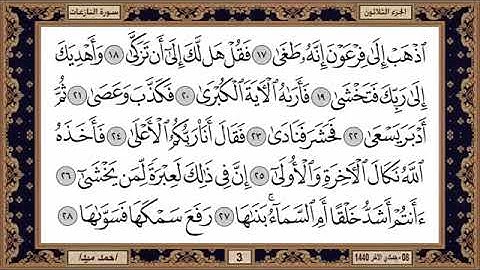 الجزء الثلاثون
سورة النازعات
اذْهَبْ إِلَىٰ فِرْعَوْنَ إِنَّهُ طَغَىٰ ١٧ فَقُلْ هَل لَّكَ إِلَىٰ أَن تَزَكَّىٰ ١٨ وَأَهْدِيَكَ
إِلَىٰ رَبِّكَ فَتَخْشَىٰ ١٩ فَأَرَاهُ الْآيَةَ الْكُبْرَىٰ ٢٠ فَكَذَّبَ وَعَصَىٰ ٢١ ثُمَّ
أَدْبَرَ يَسْعَىٰ ٢٢ فَحَشَرَ فَنَادَىٰ ٢٣ فَقَالَ أَنَا رَبُّكُمُ الْأَعْلَىٰ ٢٤ فَأَخَذَهُ
اللَّهُ نَكَالَ الْآخِرَةِ وَالْأُولَىٰ ٢٥ إِنَّ فِي ذَٰلِكَ لَعِبْرَةً لِّمَن يَخْشَىٰ ٢٦
ءَأَنتُمْ أَشَدُّ خَلْقًا أَمِ السَّمَاءُ ۚ بَنَاهَا ٢٧ رَفَعَ سَمْكَهَا فَسَوَّاهَا ٢٨
08 - جمادى الآخر 1440
3